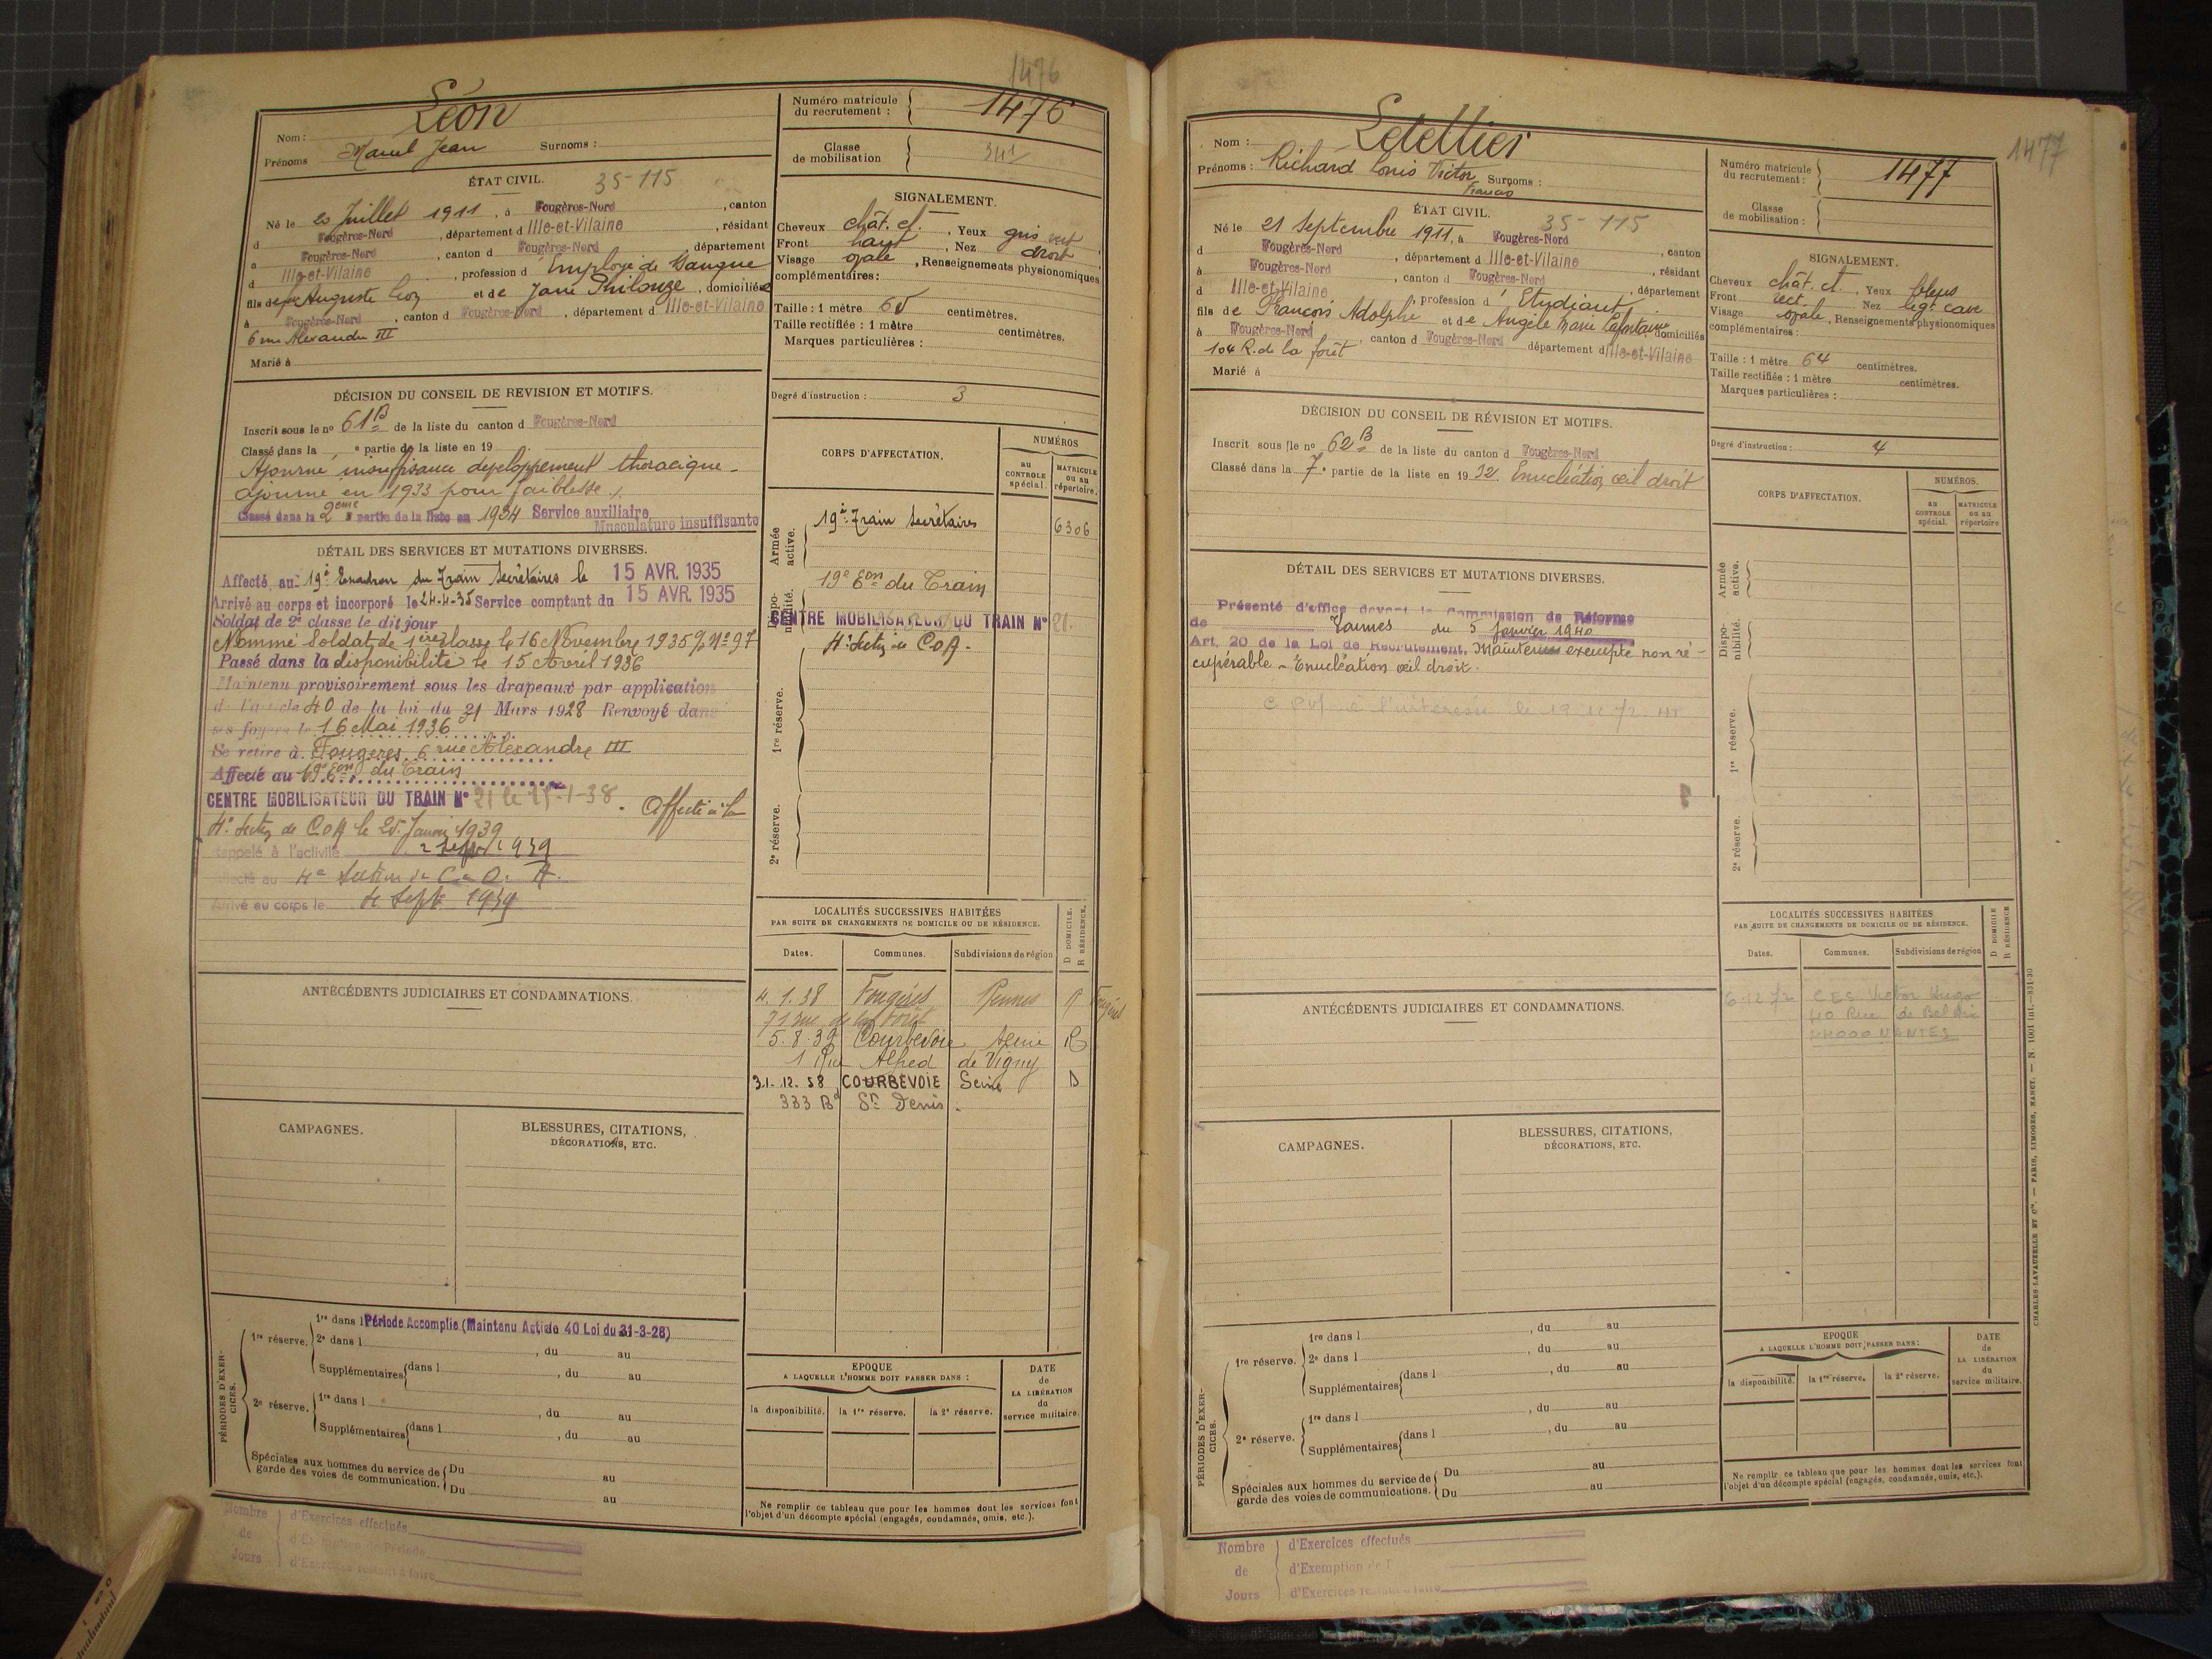 1476
Léon
Nom :
Prénoms Marcel Jean Surnoms :
Numéro matricule du recrutement : 1476
Classe de mobilisation
ÉTAT CIVIL. 35-115
Né le 20 Juillet 1911, à Fougères-Nord, canton
d Fougères-Nord, département d Ille-et-Vilaine, résidant
à Fougères-Nord, canton d Fougères-Nord, département
d Ille-et-Vilaine, profession d Employé de Banque
fils de feu Auguste Léon et de Jane Philouze, domiciliés
à Fougères-Nord, canton d Fougères-Nord, département d Ille-et-Vilaine
6 rue Alexandre III
Marié à
SIGNALEMENT.
Cheveux chât. cl., Yeux gris vert
Front haut, Nez droit
Visage ovale, Renseignements physionomiques
complémentaires :
Taille : 1 mètre 65 centimètres.
Taille rectifiée : 1 mètre centimètres.
Marques particulières :
Degré d'instruction : 3
DÉCISION DU CONSEIL DE REVISION ET MOTIFS.
Inscrit sous le no 61 B de la liste du canton d Fougères-Nord
Classé dans la e partie de la liste en 19
Ajourné insuffisance développement thoracique -
ajourné en 1933 pour faiblesse
Classé dans la 2eme partie de la liste en 1934 Service auxiliaire
Musculature insuffisante
DÉTAIL DES SERVICES ET MUTATIONS DIVERSES.
Affecté au 19e Escadron du Train Secrétaires le 15 AVR. 1935
Arrivé au corps et incorporé le 24-4-35 Service comptant du 15 AVR. 1935
Soldat de 2e classe le dit jour
Nommé Soldat de 1ère classe le 16 Novembre 1935 No 97
Passé dans la disponibilité le 15 Avril 1936
Maintenu provisoirement sous les drapeaux par application
de l'article 40 de la loi du 31 Mars 1928 Renvoyé dans
ses foyers le 16 Mai 1936
Se retire à Fougères 6 rue Alexandre III
Affecté au 19e Eon du Train
CENTRE MOBILISATEUR DU TRAIN No 21 le 25-1-38. Affecté à la
4e Section de COA le 25 Janvier 1939
Rappelé à l'activité 2 Sept 1939
Affecté au 4e Section de C. O. A.
Arrivé au corps le Sept 1939
CORPS D'AFFECTATION.
NUMÉROS
au CONTROLE spécial.
MATRICULE ou au répertoire.
Armée active.
19e Train Secrétaires 6306
Disponibilité.
19e Eon du Train
CENTRE MOBILISATEUR DU TRAIN No 21.
4e Section de COA.
1re réserve.
2e réserve.
LOCALITÉS SUCCESSIVES HABITÉES
PAR SUITE DE CHANGEMENTS DE DOMICILE OU DE RÉSIDENCE.
D DOMICILE. R RÉSIDENCE.
Dates. Communes. Subdivisions de région
4.1.38 Fougères Rennes R Fougères
71 rue de la Forêt
5.8.39 Courbevoie Seine R
1 Rue Alfred de Vigny
31.12.58 COURBEVOIE Seine D
333 Bd St Denis.
ANTÉCÉDENTS JUDICIAIRES ET CONDAMNATIONS.
CAMPAGNES.
BLESSURES, CITATIONS,
DÉCORATIONS, ETC.
PÉRIODES D'EXERCICES.
1re réserve.
1re dans l Période Accomplie (Maintenu Article 40 Loi du 31-3-28)
2e dans l , du au
Supplémentaires dans l , du au
2e réserve.
1re dans l , du au
Supplémentaires dans l , du au
Spéciales aux hommes du service de garde des voies de communication.
Du au
Du au
EPOQUE
A LAQUELLE L'HOMME DOIT PASSER DANS :
la disponibilité. la 1re réserve. la 2e réserve.
DATE de LA LIBÉRATION du service militaire.
Ne remplir ce tableau que pour les hommes dont les services font
l'objet d'un décompte spécial (engagés, condamnés, omis, etc.).
Nombre de Jours
d'Exercices effectués
d'Exemption de Période
d'Exercices restant à faire
1477
Letellier
Nom :
Prénoms : Richard Louis Victor Surnoms :
François
Numéro matricule du recrutement : 1477
Classe de mobilisation :
ÉTAT CIVIL. 35-115
Né le 21 Septembre 1911, à Fougères-Nord
d Fougères-Nord, département d Ille-et-Vilaine, canton
à Fougères-Nord, canton d Fougères-Nord, résidant
d Ille-et-Vilaine, profession d Etudiant, département
fils de François Adolphe et de Angèle Marie Lafontaine domiciliés
à Fougères-Nord, canton d Fougères-Nord département d Ille-et-Vilaine
104 R. de la forêt
Marié à
SIGNALEMENT.
Cheveux chât. cl., Yeux bleus
Front rect. Nez leg. cave
Visage ovale, Renseignements physionomiques
complémentaires :
Taille : 1 mètre 64 centimètres.
Taille rectifiée : 1 mètre centimètres.
Marques particulières :
Degré d'instruction : 4
DÉCISION DU CONSEIL DE RÉVISION ET MOTIFS.
Inscrit sous le no 62 B de la liste du canton d Fougères-Nord
Classé dans la 7e partie de la liste en 1932 Enucléation œil droit
DÉTAIL DES SERVICES ET MUTATIONS DIVERSES.
Présenté d'office devant la Commission de Réforme
de Vannes du 5 Janvier 1940
Art. 20 de la Loi de Recrutement. Maintenu exempté non ré-
cupérable - Enucléation œil droit.
CORPS D'AFFECTATION.
NUMÉROS.
au CONTROLE spécial.
MATRICULE ou au répertoire
Armée active.
Disponibilité.
1re réserve.
2e réserve.
LOCALITÉS SUCCESSIVES HABITÉES
PAR SUITE DE CHANGEMENTS DE DOMICILE OU DE RÉSIDENCE.
D DOMICILE R RÉSIDENCE
Dates. Communes. Subdivisions de région
6.12.72 CES Victor Hugo
40 Rue de
44000 NANTES
ANTÉCÉDENTS JUDICIAIRES ET CONDAMNATIONS.
CAMPAGNES.
BLESSURES, CITATIONS,
DÉCORATIONS, ETC.
PÉRIODES D'EXERCICES.
1re réserve.
1re dans l , du au
2e dans l , du au
Supplémentaires dans l , du au
2e réserve.
1re dans l , du au
Supplémentaires dans l , du au
Spéciales aux hommes du service de garde des voies de communications.
Du au
Du au
EPOQUE
A LAQUELLE L'HOMME DOIT PASSER DANS :
la disponibilité. la 1re réserve. la 2e réserve.
DATE de LA LIBÉRATION du service militaire.
Ne remplir ce tableau que pour les hommes dont les services font
l'objet d'un décompte spécial (engagés, condamnés, omis, etc.).
CHARLES-LAVAUZELLE ET Cie. — PARIS, LIMOGES, NANCY. — N. 1001 int.—831-30
Nombre de Jours
d'Exercices effectués
d'Exemption de
d'Exercices restant à faire